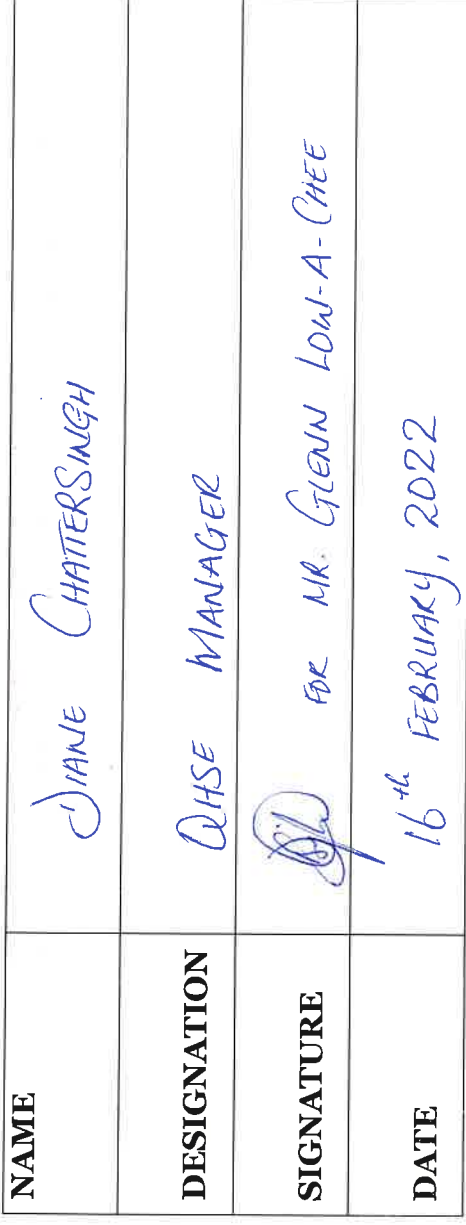 NAME DIANE CHATTERSINGH
DESIGNATION QHSE MANAGER
SIGNATURE FOR MR. GLENN LOW-A-CHEE
DATE 16th FEBRUARY, 2022